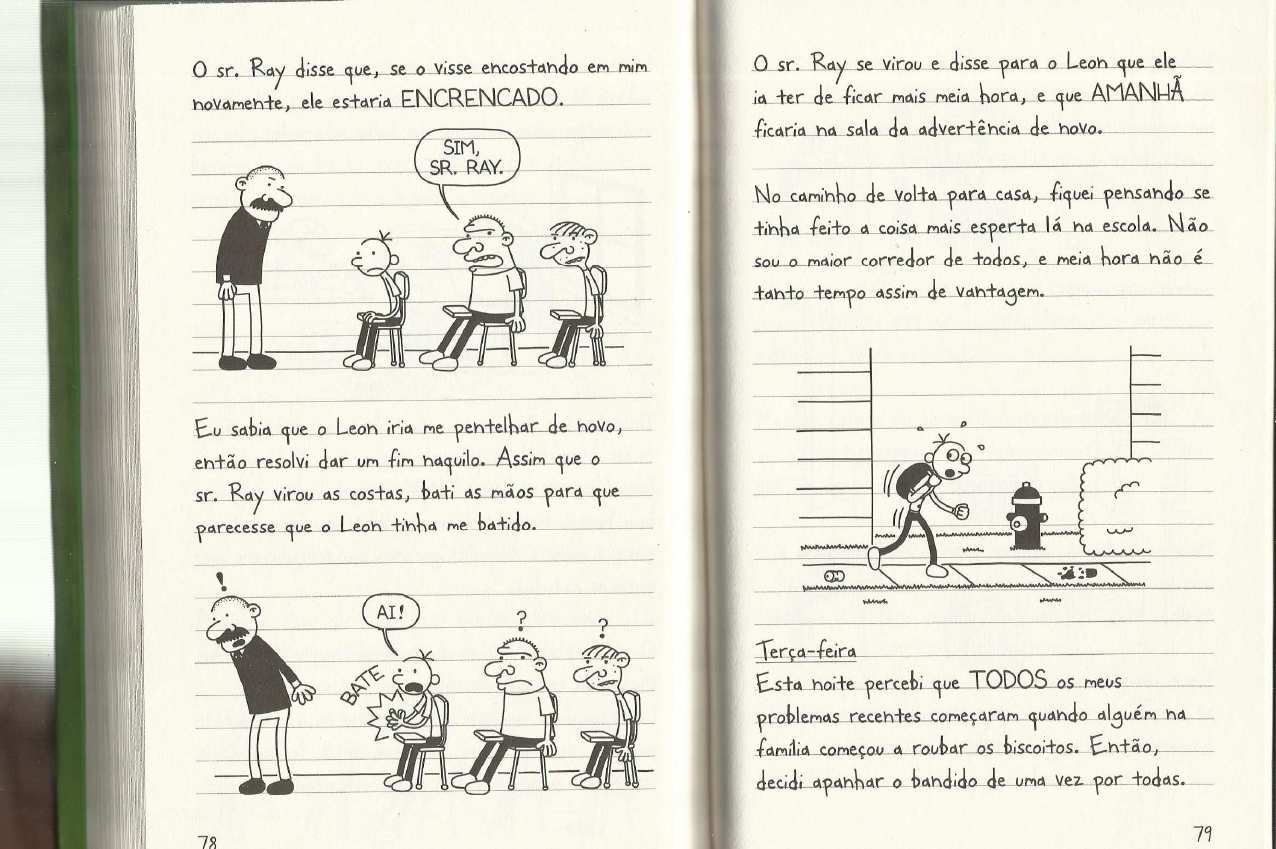 O sr. Ray disse que, se o visse encostando em mim
novamente, ele estaria ENCRENCADO.
SIM,
SR. RAY.
Eu sabia que o Leon iria me pentelhar de novo,
então resolvi dar um fim naquilo. Assim que o
sr. Ray virou as costas, bati as mãos para que
parecesse que o Leon tinha me batido.
!
AI!
BATE
?
?
78
O sr. Ray se virou e disse para o Leon que ele
ia ter de ficar mais meia hora, e que AMANHÃ
ficaria na sala da advertência de novo.
No caminho de volta para casa, fiquei pensando se
tinha feito a coisa mais esperta lá na escola. Não
sou o maior corredor de todos, e meia hora não é
tanto tempo assim de vantagem.
Terça-feira
Esta noite percebi que TODOS os meus
problemas recentes começaram quando alguém na
família começou a roubar os biscoitos. Então,
decidi apanhar o bandido de uma vez por todas.
79